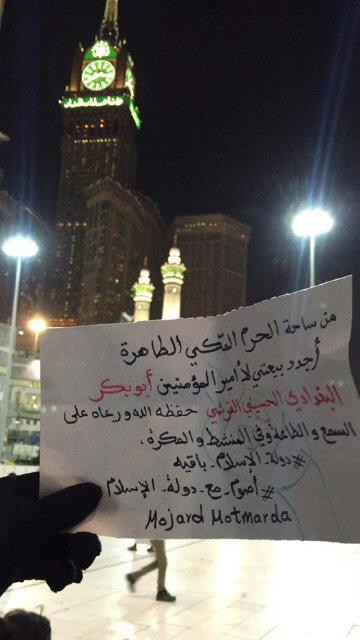 من ساحة الحرم المكي الطاهرة
أجدد بيعتي لأمير المؤمنين أبوبكر
البغدادي الحسيني القرشي حفظه الله ورعاه على
السمع والطاعة وفي المنشط والمكره،
#دولة_الإسلام_باقيه
#أصوم_مع_دولة_الإسلام
Mojard Motmarda